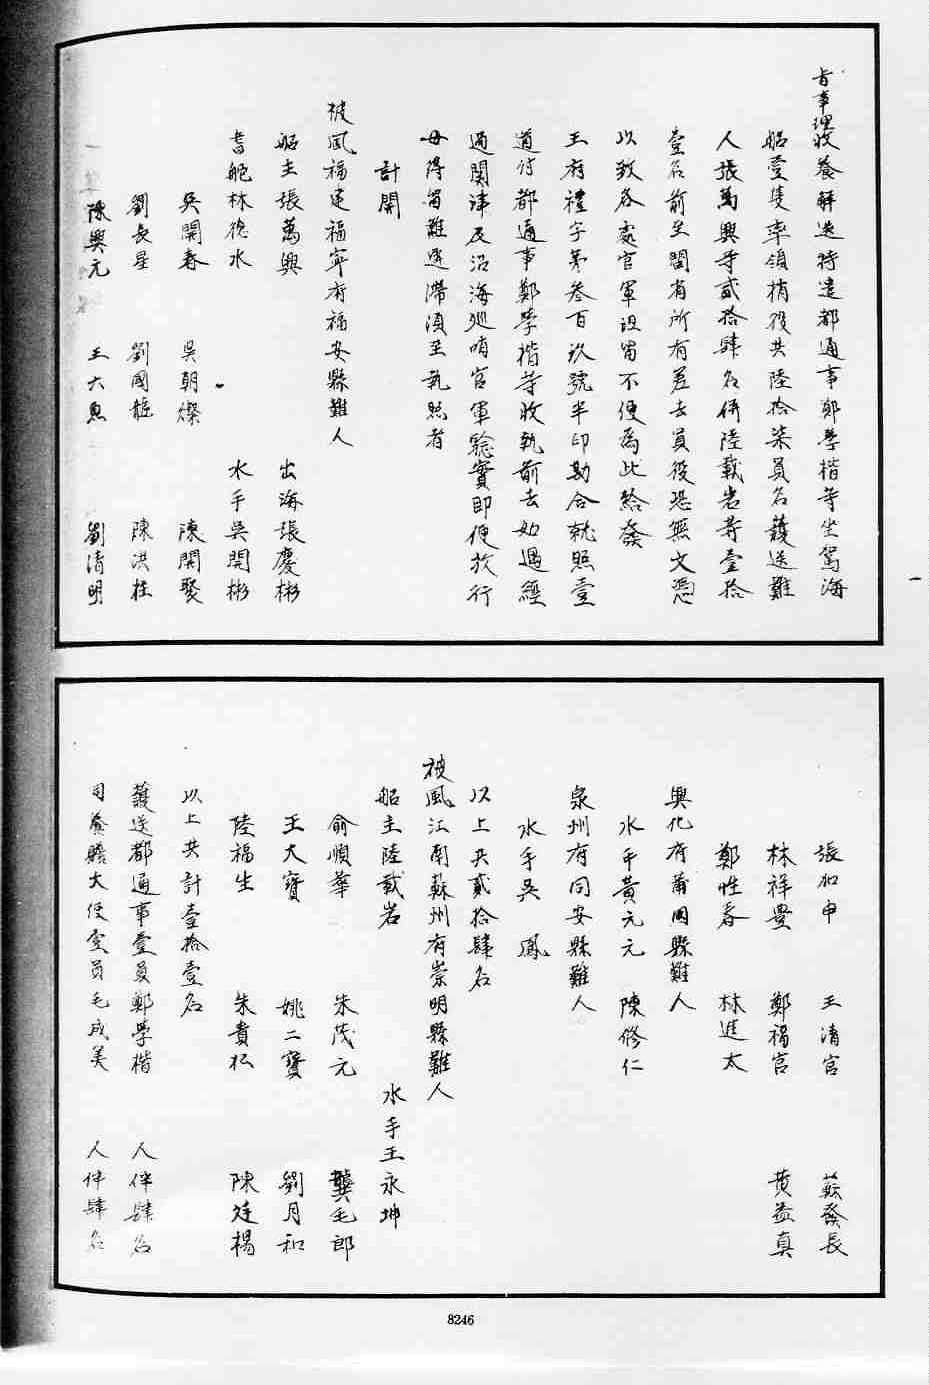 旨事理收養解送特遣都通事鄭學楷等坐駕海
船壹隻率領梢役共陸拾柒員名護送難
人張萬興等貳拾肆名併陸載岩等壹拾
壹名前至閩省所有差去員役恐無文憑
以致各處官軍設留不便為此給發
王府禮字第叁百玖號半印勘合執照壹
道付都通事鄭學楷等收執前去如遇經
過關津及沿海巡哨官軍驗實即便放行
毋得留難遲滯須至執照者
計開
被風福建福寧府福安縣難人
船主張萬興 出海張慶彬
耆舵林德水 水手吳開彬
吳開春 吳朝燦 陳開聚
劉長星 劉國 陳洪柱
陳興元 王大 劉清明
張加申 王清官 蘇發長
林祥豊 鄭福官 黄益真
鄭性春 林進太
興化府莆田縣難人
水手黃元元 陳修仁
泉州府同安縣難人
水手吳鳳
以上共貳拾肆名
被風江南蘇州府崇明縣難人
船主陸載岩 水手王永坤
俞順華 朱茂元 龔毛郎
王大寶 姚二寶 劉月和
陸福生 朱貴松 陳廷楊
以上共計壹拾壹名
護送都通事壹員鄭學楷 人伴肆名
司養贍大使壹員毛成美 人伴肆名
8246